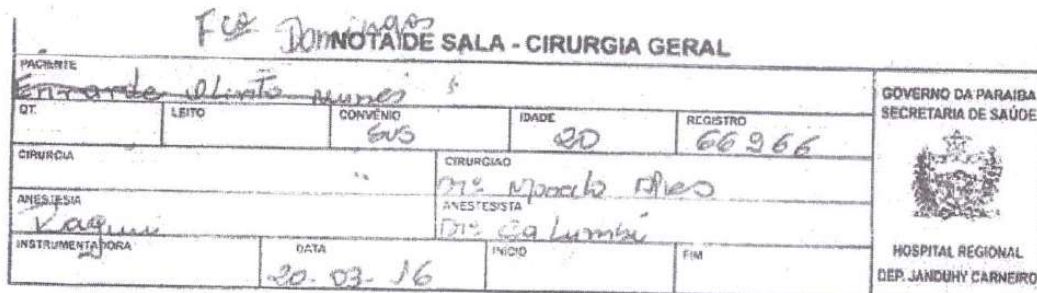 Fco Domingos
NOTA DE SALA - CIRURGIA GERAL
PACIENTE
Olinto Nunes
QT. LEITO CONVÊNIO IDADE REGISTRO
SUS 20 66966
CIRURGIA CIRURGIAO
Drº Marcelo Alves
ANESTESIA ANESTESISTA
Raqui Drº
INSTRUMENTADORA DATA INÍCIO FIM
20-03-16
GOVERNO DA PARAIBA
SECRETARIA DE SAÚDE
HOSPITAL REGIONAL
DEP. JANDUHY CARNEIRO